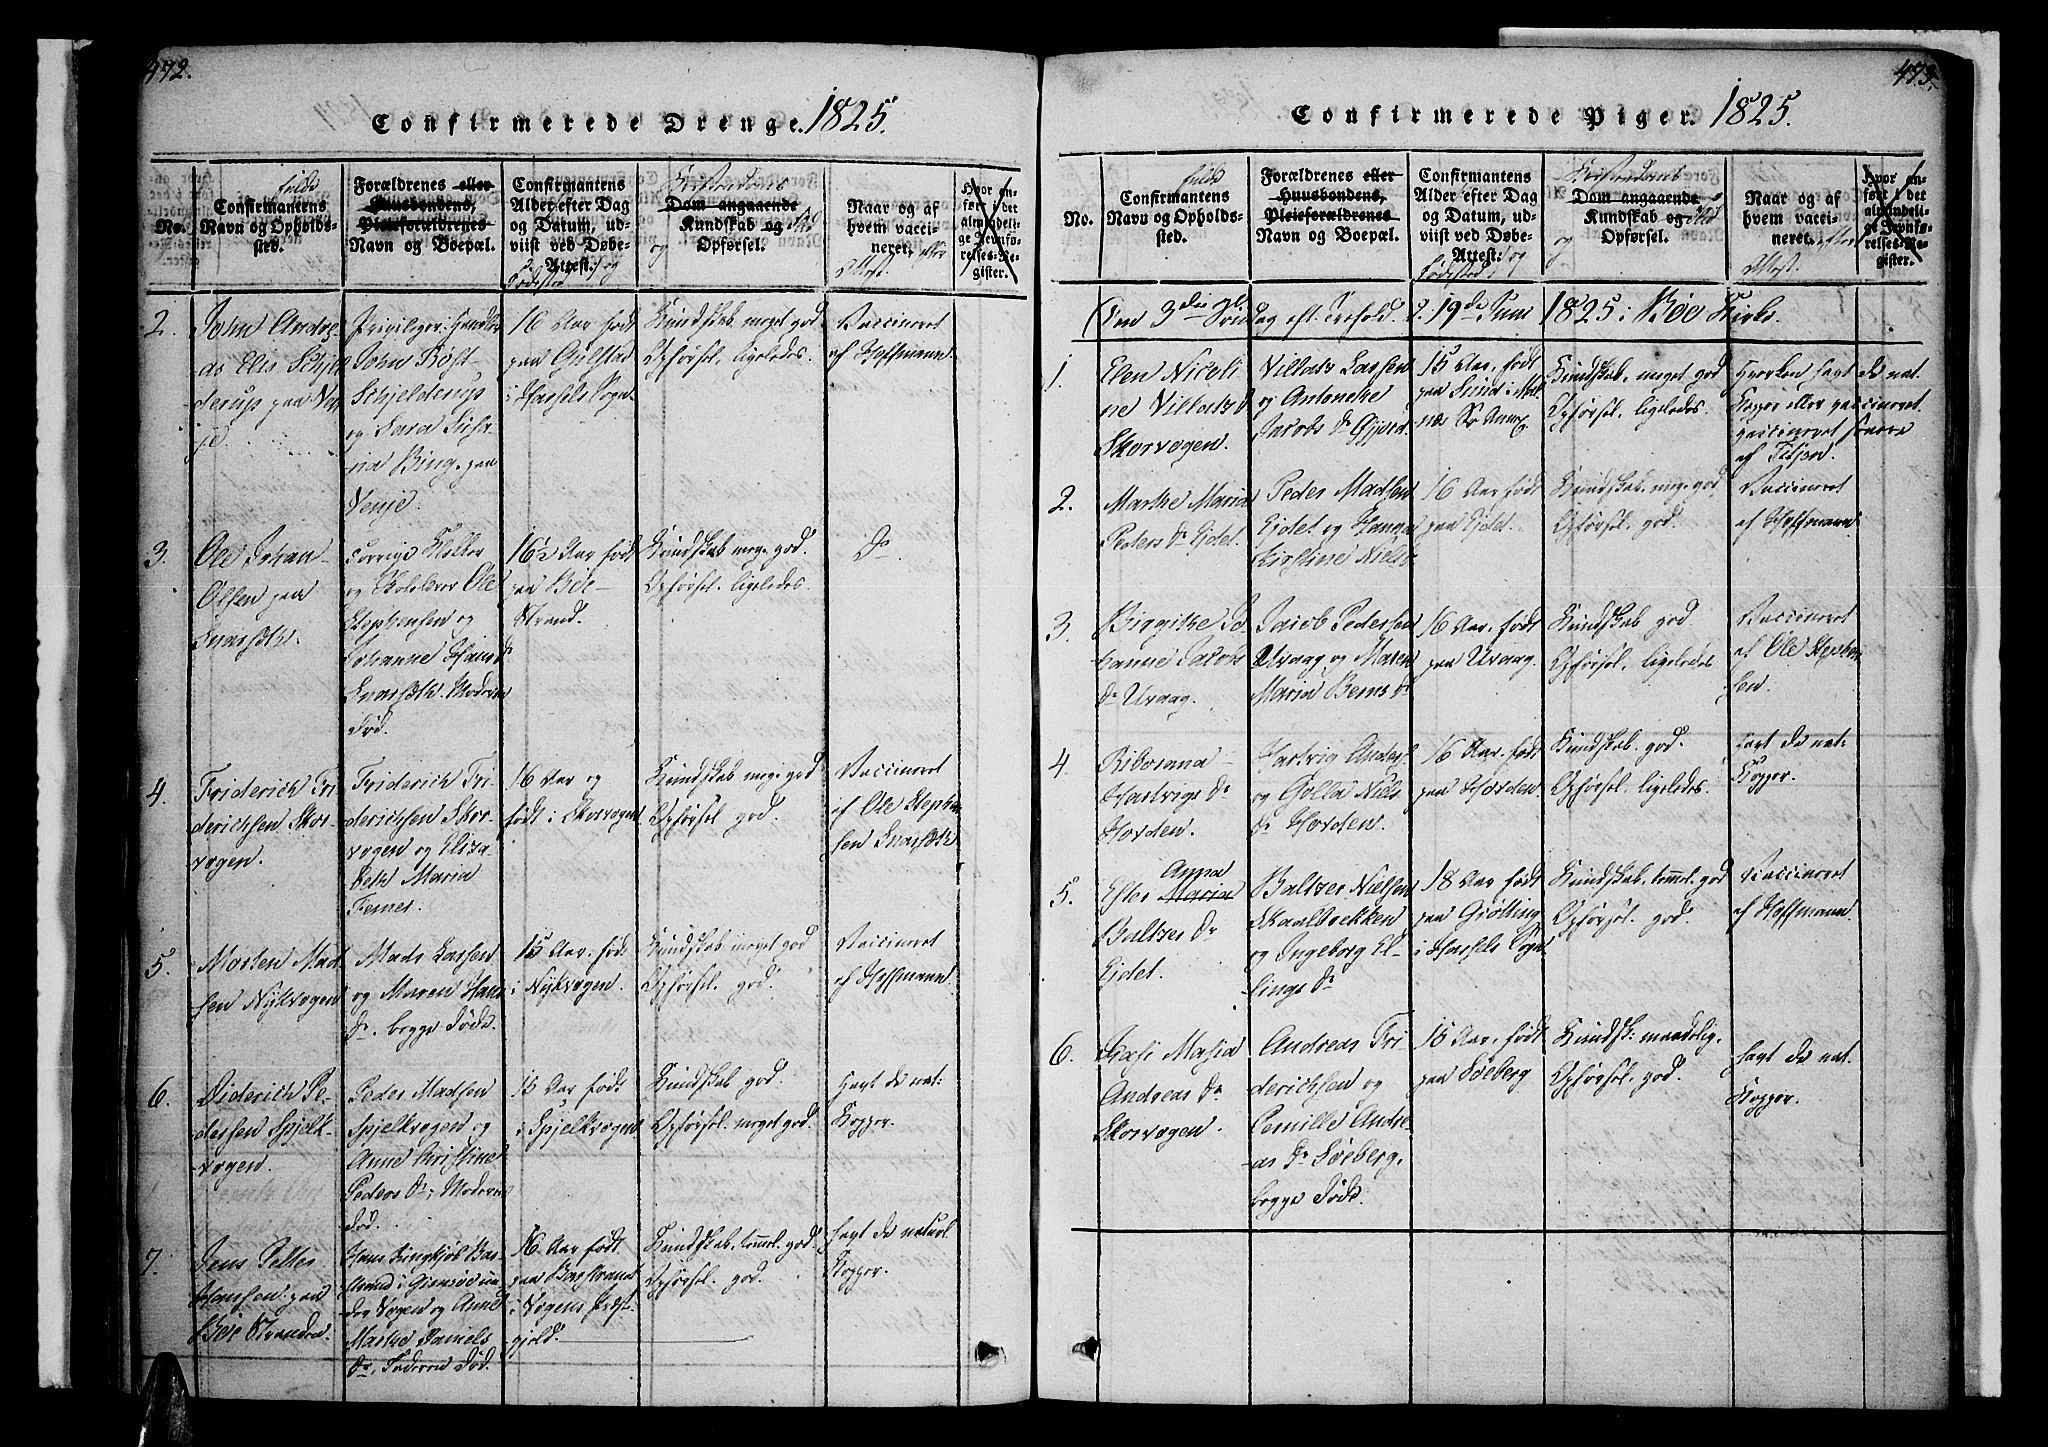 472.
Confirmerede Drenge. 1825.
No.
fulde
Confirmantens
Navn og Opholds-
sted.
Forældrenes eller
Huusbondens,
Pleieforældrenes
Navn og Boepæl.
Confirmantens
Alder efter Dag
og Datum, ud-
viist ved Døbe-
Attest: og
Fødested
Christendoms
Dom angaaende
Kundskab og
og Opførsel.
Naar og af
hvem vacci-
neret, efter
Attest.
Hvor an-
ført i det
almindeli-
ge Jevnfø-
relses-Re-
gister.
2.
John Andre-
as Elis Schjel-
derup paa Ven-
je
Privileger: Handler
John Røst
Schjelderup
og Sara Susa-
na Bing, paa
Venje.
16 Aar født
paa Gulstad
i Hassels Sogn.
Kundskab meget god
Opførsel, ligeledes.
Vaccineret
af Hoffmann.
3.
Ole Johan
Olsen paa
Qvarsæth.
og Skolelærer Ole
Stephensen og
Johanne Hans Dr
Qvarsæth. Moderen
død.
16½ Aar født
paa Bøe-
Strand.
Kundskab meg. god.
Opførsel, ligeledes.
Do
4.
Friderich Fri-
derichsen Skor-
vogen.
Friderich Fri-
derichsen Skor-
vogen og Eliza-
beth Maria
16 Aar og
født i Skorvogen
Kundskab meg. god
Opførsel god.
Vaccineret
af Ole Stephen-
sen Qvarsæth
5.
Morten Mad-
sen Nykvogen
Mads Larsen
og Maren Hans
Dr. begge døde.
15 Aar. født
i Nykvogen.
Kundskab meget god
Opførsel, god.
Vaccineret
af Hoffmann.
6.
Diderich Pe-
dersen Spjelk-
vogen.
Peder Madsen
Spjelkvogen og
Anne Christine
Peders Dr, Moderen
død.
15 Aar født
i Spjelkvogen
Kundskab god.
Opførsel, meget god.
Havt de nat:
Kopper.
7.
Jens Petter
Hansen paa
Bøe Stranden.
Hans Ringkjøb Bar-
strand i Gimsøe un-
der Vogen og Anne
Martha Daniels
Dr, Faderen død.
16 Aar født
paa Barstrand
i Vogens Præst-
gjeld.
Kundskab, temmel. god.
Opførsel, god.
havt de naturl.
Kopper.
473.
Confirmerede Piger. 1825.
No.
fulde
Confirmantens
Navn og Opholds-
sted.
Forældrenes eller
Huusbondens,
Pleieforældrenes
Navn og Boepæl.
Confirmantens
Alder efter Dag
og Datum, ud-
viist ved Døbe-
Attest: og
Fødested
Christendoms
Dom angaaende
Kundskab og
og Opførsel.
Naar og af
hvem vacci-
neret, efter
Attest.
Hvor an-
ført i det
almindeli-
ge Jevnfø-
relses-Re-
gister.
Den 3die Søndag eft. Trefold. d. 19de Juni 1825 i Bøe Kirke.
1.
Elen Nicoli-
ne Villats Dr
Skorvogen.
Villats Larsen
og Antonethe
Jacobs Dr
15 Aar, født
paa Sund i Mel-
Kundskab, meget god
Opførsel, ligeledes.
Hverken havt de nat.
Kopper eller vaccineret.
vaccineret senere
af
2.
Marthe Maria
Peders Dr Eidet.
Peder Madsen
Eidet og Hanna
Kirstine Niels Dr
16 Aar født
paa Eidet.
Kundskab, meg. god
Opførsel, god.
Vaccineret
af Hoffmann
3.
Birgithe Jo-
hanne Jacobs
Dr Uvaag.
Jacob Pedersen
Uvaag og Maren
Maria Bernts Dr
16 Aar, født
paa Uvaag.
Kundskab god
Opførsel, ligeledes
Vaccineret
af Ole Stephen-
sen.
4.
Hartvigs Dr
Horden.
Hartvig Anders.
og Golla Niels
Dr Horden.
16 Aar, født
paa Horden
Kundskab, god.
Opførsel, ligeledes.
Havt de nat:
Kopper.
5.
Anna
Ester Maria
Baltzer Dr
Eidet.
Baltzer Nielsen
Skaalbrekken
og Ingeborg El-
lings Dr
18 Aar født
paa Grøtting
i Hassels Sogn.
Kundskab, temmel. god
Opførsel, god.
Vaccineret
af Hoffmann.
6.
Maria
Andreas Dr
Skorvogen.
Andreas Fri-
derichsen og
Pernille Andre-
as Dr Søeberg,
begge døde.
15 Aar, født
paa Søeberg
Kundsk: maadelig.
Opførsel, god.
havt de nat.
Kopper.